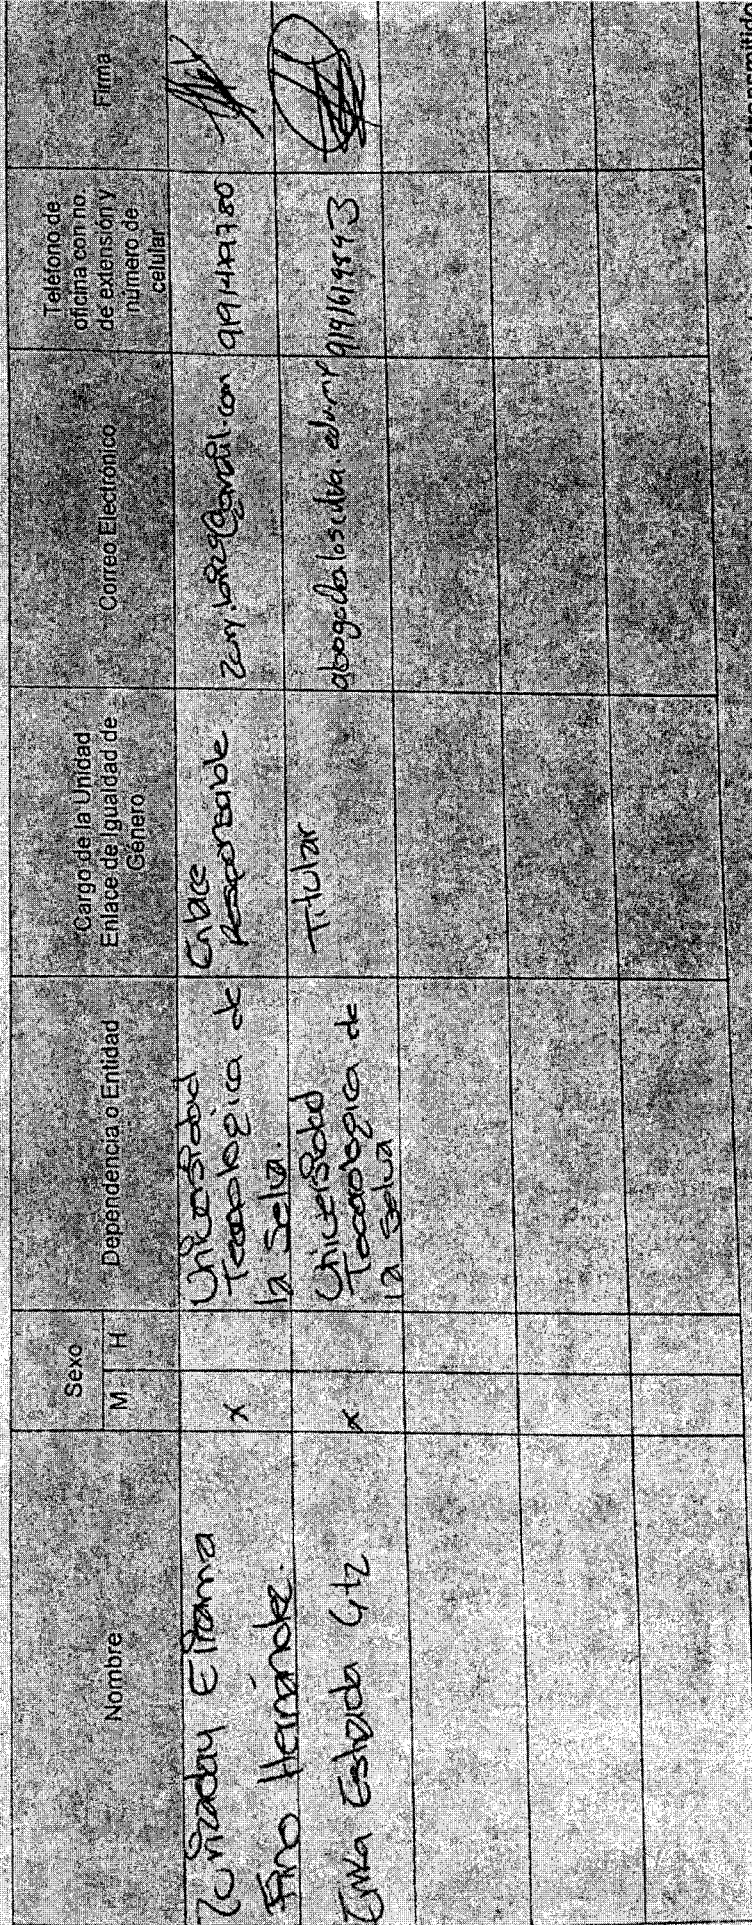 Nombre
Sexo
M H
Dependencia o Entidad
Cargo de la Unidad
Enlace de Igualdad de
Género
Correo Electrónico
Teléfono de
oficina con no.
de extensión y
número de
celular
Firma
Zurizaday Elframa
Fino Hernández.
x
Universidad
Tecnologica de
la Selva.
Enlace
Responsable
Erika Estrada Gtz
x
Universidad
Tecnologica de
la Selva
Titular
9191619893